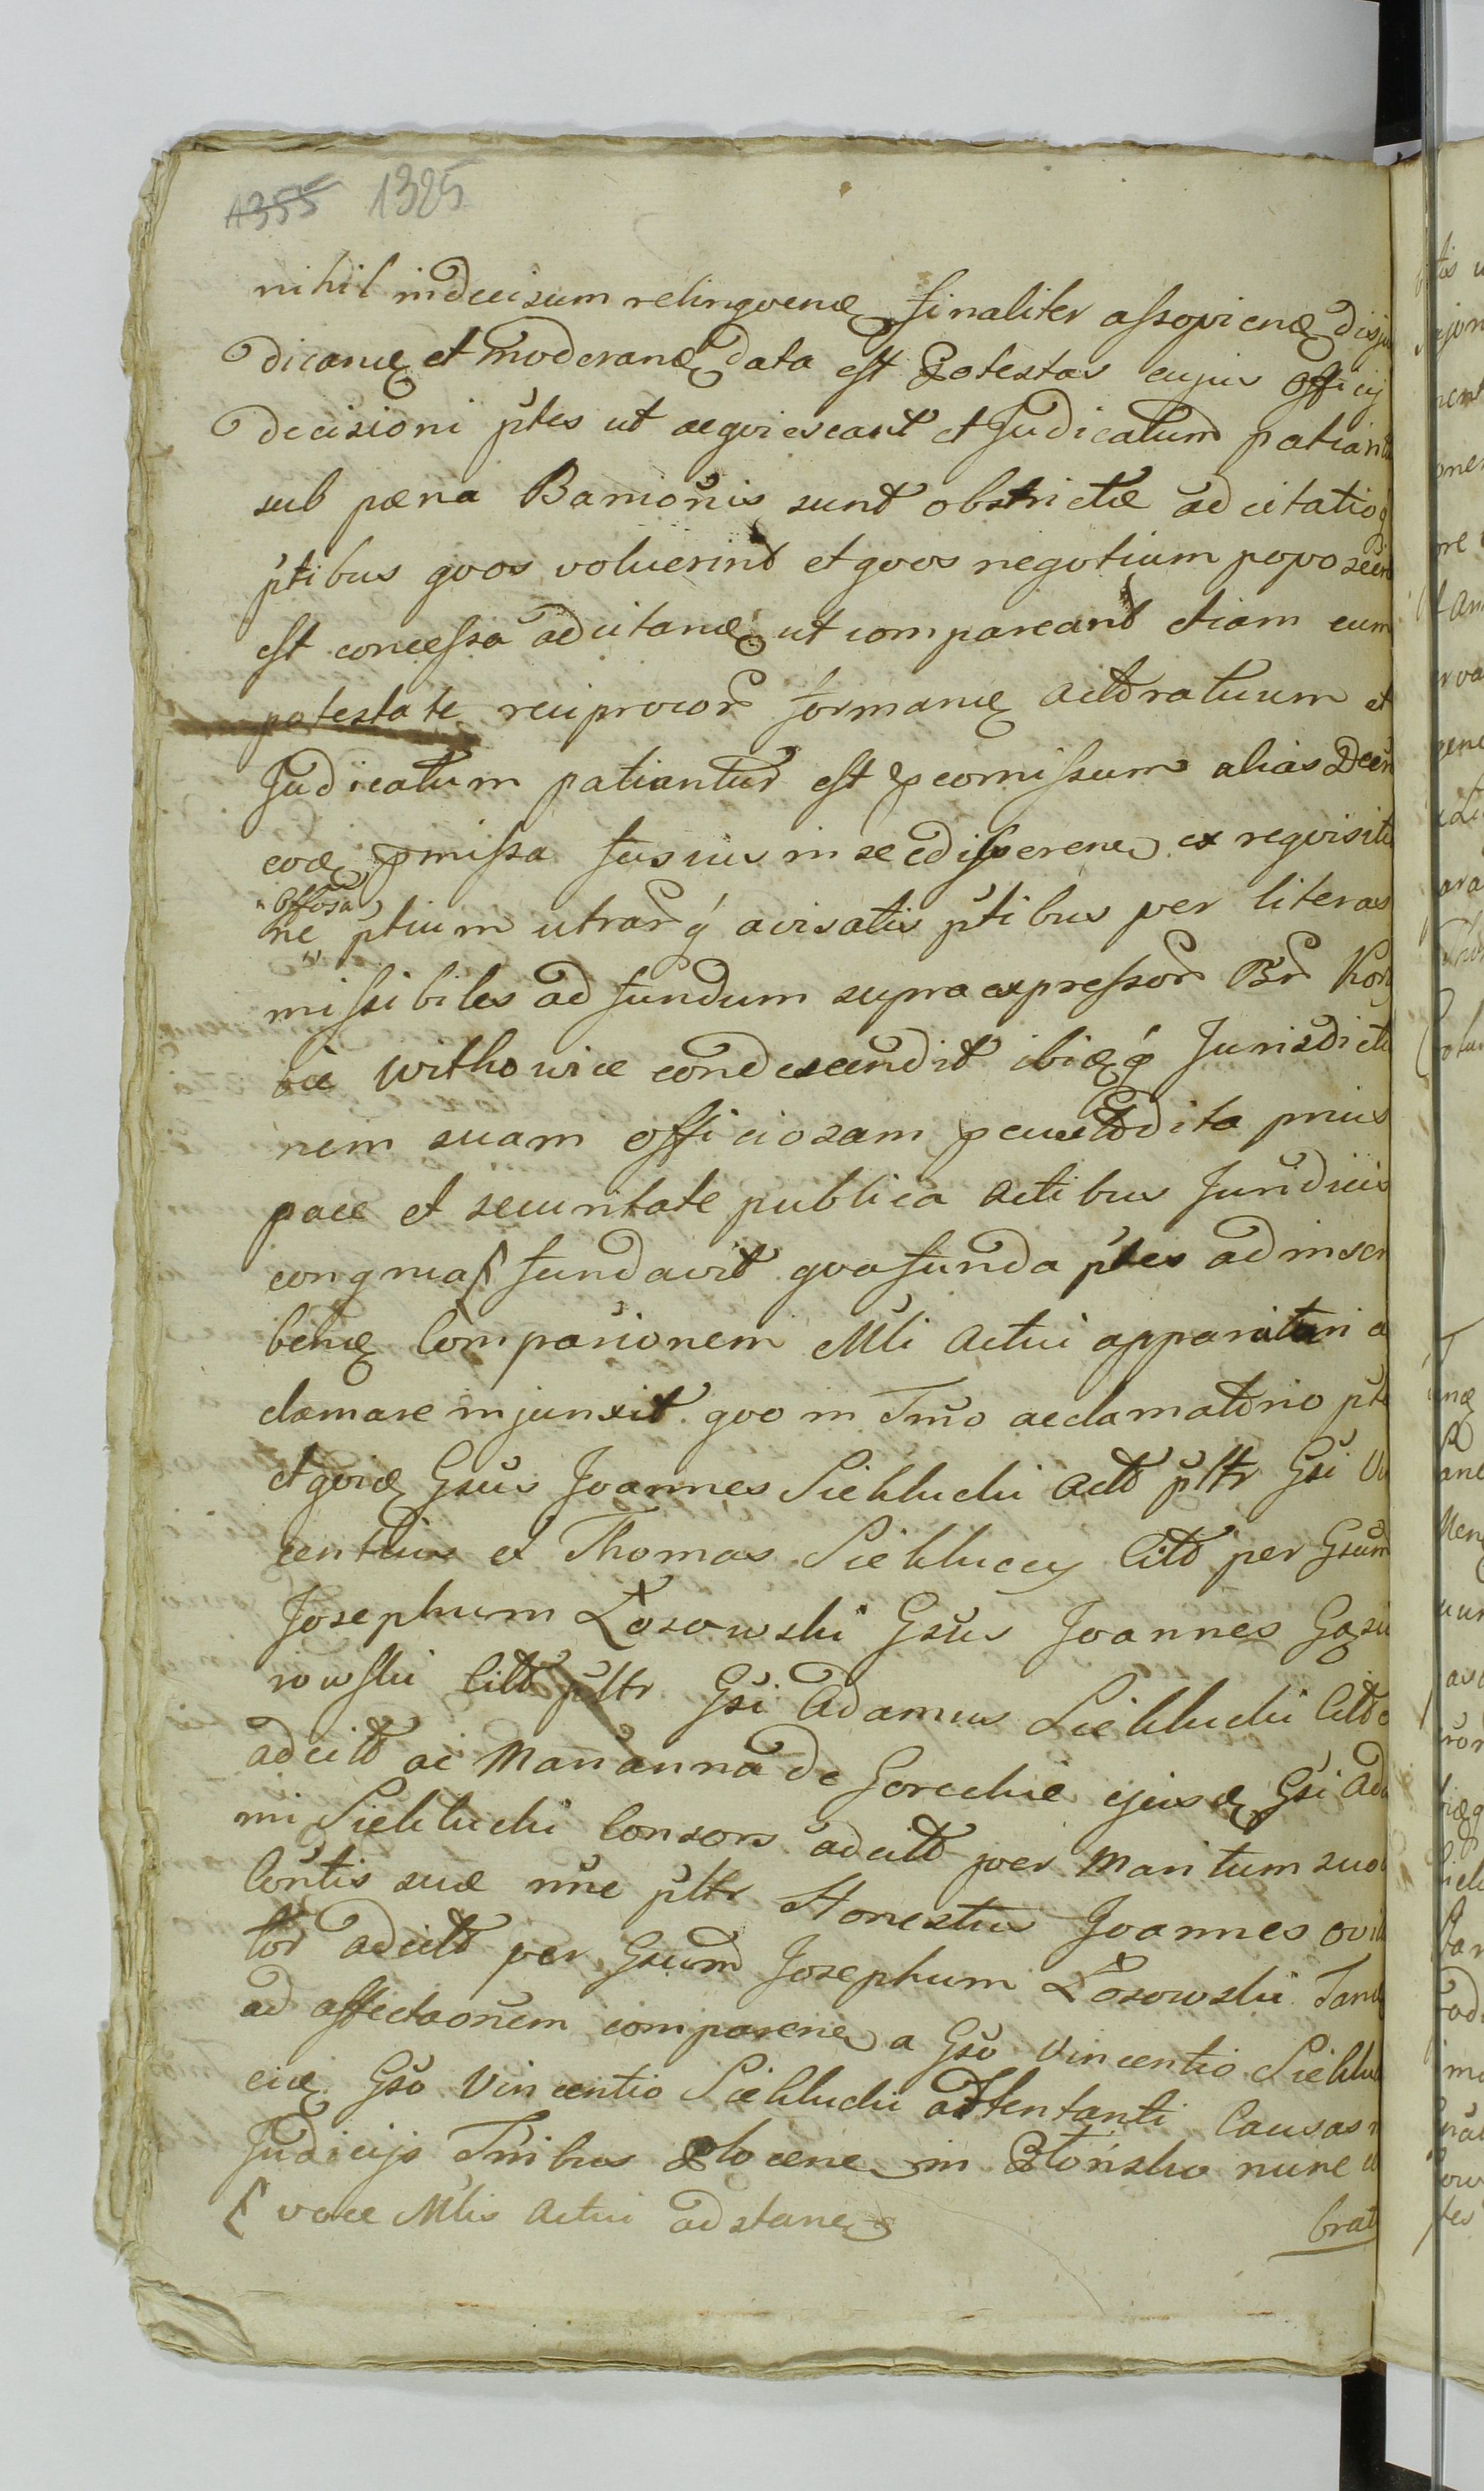 1355 1325
nihil indecisum relinquend finaliter assopiend diiju
dicand et moderand data est Potestas cujus Officij
decisioni ptes ut acquiescant et Judicatum patiant
sub pæna Bannonis sunt obstrictæ adcitatioq
ptibus quos voluerint et quos negotium poposcerit
est concessa adcitand ut compareant etiam cum
potestate reciprocor formand actoratuum et
Judicatum patiantur est pcomissum alias Decr
eod pmissa fusius in se edisserens ex requisitio
Offosa
ne ptium utrarq avisatis ptibus per literas
missibiles ad fundum supra expressor Br
ce Withowice condescendit ibidq Jurisdictio
nem suam officiosam pcustodita prius
pace et securitate publica actibus Juridicis
congrua fundavit qua fundata ptes ad inscri
bend Comparionem Mli actui apparitori a
clamare injunxit quo in Tmo acclamatorio pte
et quid Gsus Joannes Sieklucki Act pltr Gsi Vin
centius et Thomas Sieklucey Citt per Gsum
Josephum Łosowski Gsus Joannes Gąsio
rowski Citt pltr Gsi Adamus Sieklucki Citt
adcitt ac Marianna de Goreckie ejusd Gsi Ada
mi Sieklucki Consors adcitt per Maritum suum
Contis suæ nne pltr Honestus Joannes
tor adcitt per Gsum Josephum Łosowski Tand
ad affectaonem comparens a Gso Vincentio Sieklu
eid Gso Vincentio Sieklucki attentanti Causas
Judicijs Tribus Plocens in Płońsko nunc
ſ voce Mlis actui adstans
brat